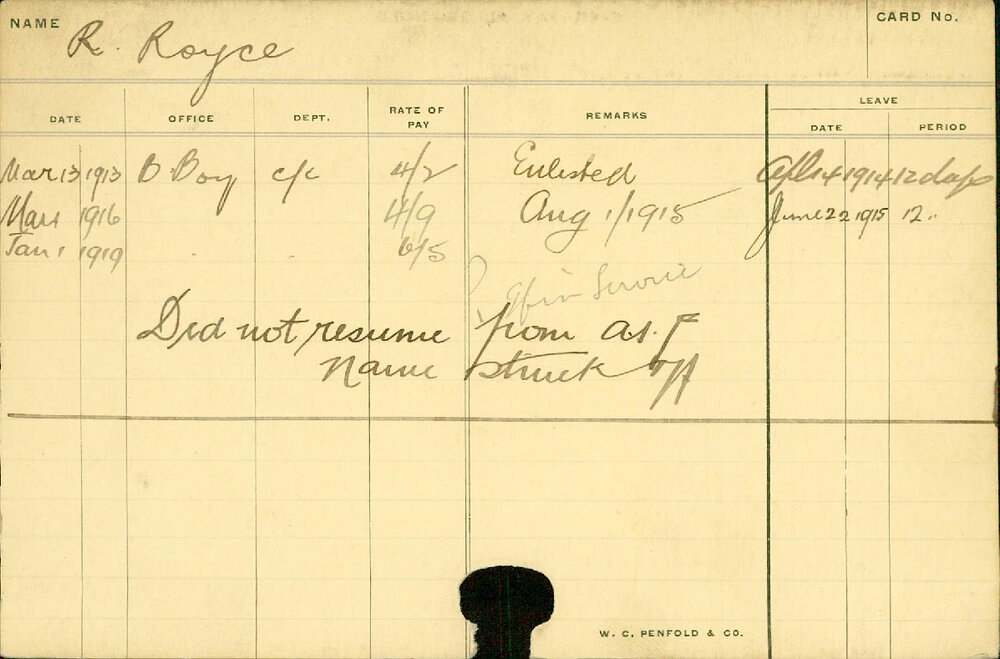 NAME R. Royce CARD No.
DATE OFFICE DEPT. RATE OF PAY REMARKS LEAVE
DATE PERIOD
Mar 13 1913 B. Boy c/c 4/2 Enlisted Apl 14 1914 12 days
Mar 1 1916 4/9 Aug 1/1915 June 22 1915 12 "
Jan 1 1919 6/5
in Service
Did not resume from as. F
Name struck off
W. C. PENFOLD & CO.